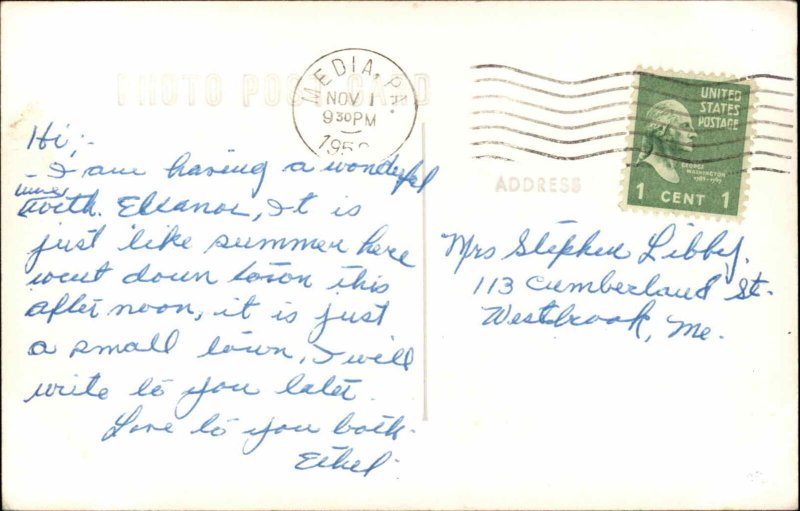 PHOTO POST CARD
MEDIA, PA.
NOV 1
9 30 PM
195
UNITED
STATES
POSTAGE
GEORGE
WASHINGTON
1789-1797
1 CENT 1
ADDRESS
Hi;-
I am having a wonderful
time
with Eleanor, It is
just like summer here
went down town this
after noon, it is just
a small town, I will
write to you later.
Love to you both-
Ethel-
Mrs Stephen Libby.
113 Cumberland St.
Westbrook, Me.